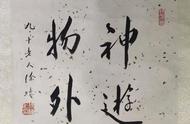 神遊
物外
九十老人